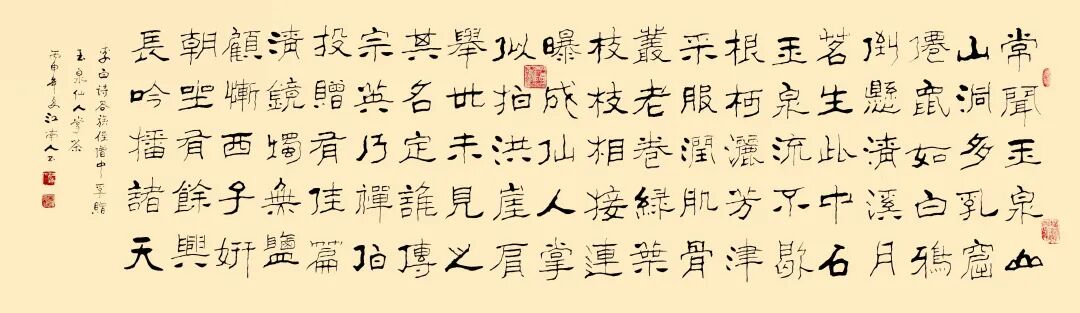 常聞玉泉山
山洞多乳窟
僊鼠如白鴉
倒懸清溪月
茗生此中石
玉泉流不歇
根柯灑芳津
采服潤肌骨
叢老卷綠葉
枝枝相接連
曝成仙人掌
似拍洪崖肩
舉世未見之
其名定誰傳
宗英乃禪伯
投贈有佳篇
清鏡燭無鹽
顧慚西子妍
朝坐有餘興
長吟播諸天
李白诗答族侄僧中孚贈
玉泉仙人掌茶
丙申年夏江南人书